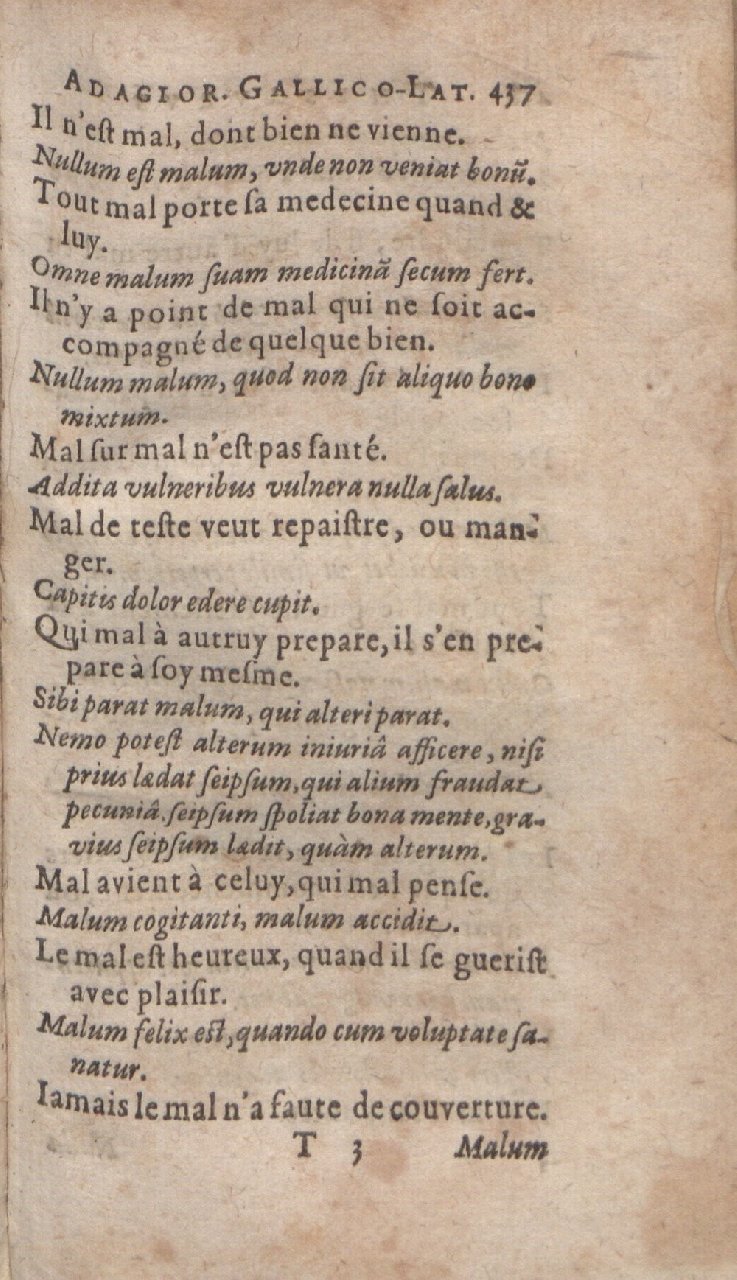 ADAGIOR. GALLICO-LAT. 437
Il n'eſt mal, dont bien ne vienne.
Nullum eſt malum, vnde non veniat bonū.
Tout mal porte ſa medecine quand &
luy.
Omne malum ſuam medicinā ſecum fert.
Il n'y a point de mal qui ne ſoit ac-
compagné de quelque bien.
Nullum malum, quod non ſit aliquo bono
mixtum.
Mal ſur mal n'eſt pas ſanté.
Addita vulneribus vulnera nulla ſalus.
Mal de teſte veut repaiſtre, ou man-
ger.
Capitis dolor edere cupit.
Qui mal à autruy prepare, il s'en pre-
pare à ſoy meſme.
Sibi parat malum, qui alteri parat.
Nemo poteſt alterum iniuriâ afficere, niſi
prius lædat ſeipſum, qui alium fraudat
pecuniâ. ſeipſum ſpoliat bona mente, gra-
vius ſeipſum lædit, quàm alterum.
Mal avient à celuy, qui mal penſe.
Malum cogitanti, malum accidit.
Le mal eſt heureux, quand il ſe gueriſt
avec plaiſir.
Malum felix eſt, quando cum voluptate ſa-
natur.
Iamais le mal n'a faute de couverture.
T 3 Malum